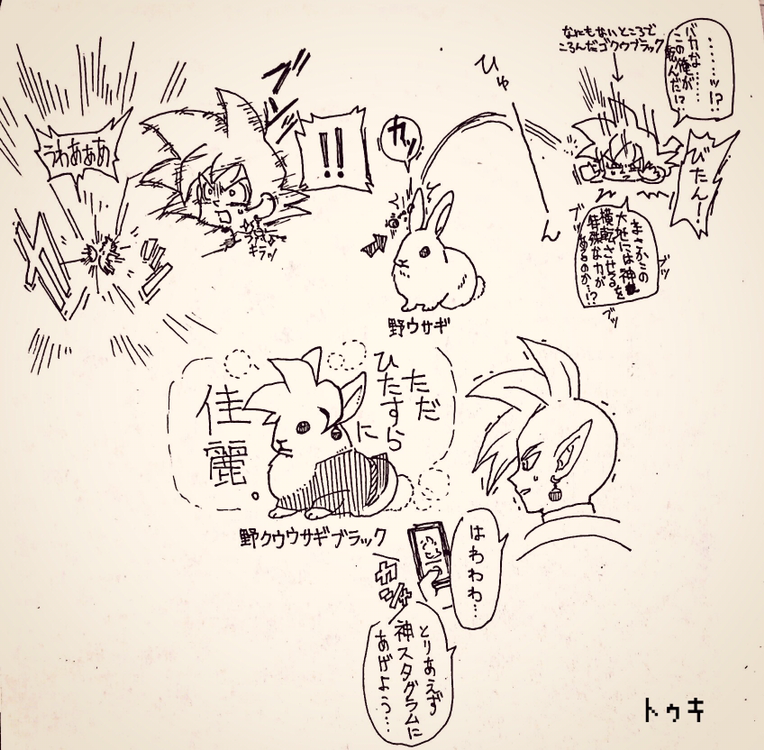 なにもないところで
ころんだゴクウブラック
………ッ!?
バカな……
この俺が
転んだ!?
びたん!
まさかこの
大地には神を
横転させる
特殊な力が
あるのか…!?
ブッ
ブッ
ブッ
ひゅ
ん
カッ
野ウサギ
!!
ブン
キラッ
うわあああ
ただ
ひたすら
に
佳麗。
野クウウサギブラック
はわわわ…
カシャ
とりあえず
神スタグラムに
あげよう…
トゥキ